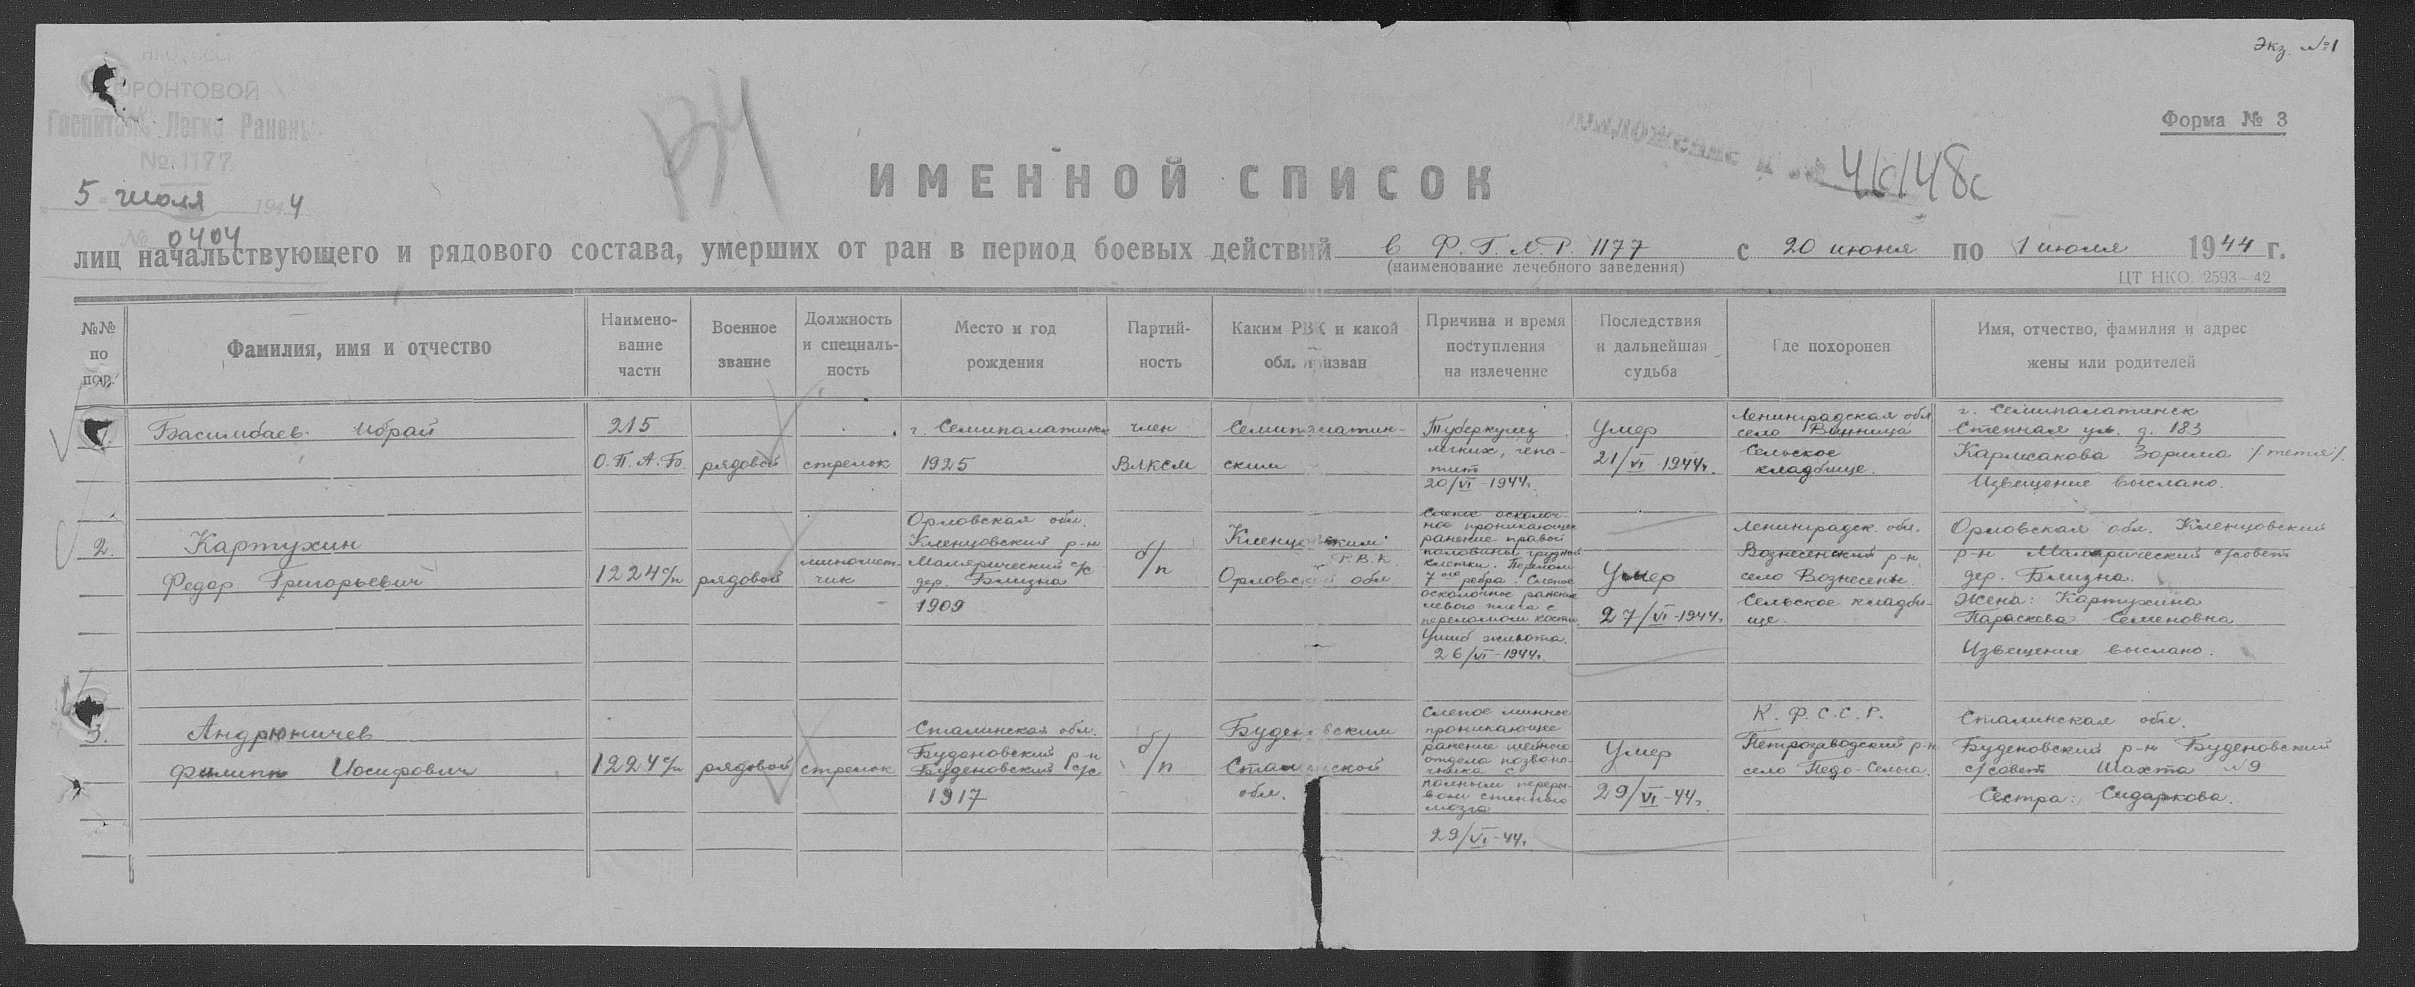 Экз. №1
НКО СССР
ФРОНТОВОЙ
Госпиталь Легко Ранены
№ 1177
5 июля 1944
№ 0404
Форма № 3
ИМЕННОЙ СПИСОК
лиц начальствующего и рядового состава, умерших от ран в период боевых действий в Ф.Г.Л.Р. 1177 с 20 июня по 1 июля 1944 г.
(наименование лечебного заведения)
ЦТ НКО. 2593—42
№№ по пор.
Фамилия, имя и отчество
Наимено-
вание
части
Военное
звание
Должность
и специаль-
ность
Место и год
рождения
Партий-
ность
Каким РВК и какой
обл. призван
Причина и время
поступления
на излечение
Последствия
и дальнейшая
судьба
Где похоронен
Имя, отчество, фамилия и адрес
жены или родителей
1.
Басимбаев Ибрай
215
О.П.А.Б.
рядовой
стрелок
г. Семипалатинск
1925
член
ВЛКСМ
Семипалатин-
ским
Туберкулез
легких, гепа-
тит
20/VI-1944г.
Умер
21/VI-1944г.
Ленинградская обл
село Винница
Сельское
кладбище.
г. Семипалатинск
Степная ул. д. 183
Карисакова Зарима /тетя/.
Извещение выслано.
2.
Картухин
Федор Григорьевич
1224 с/п
рядовой
миномет-
чик
Орловская обл.
Кленцовский р-н
Малярический с/с
дер. Близна
1909
б/п
Кленцовским
Р.В.К.
Орловской обл
Слепое осколоч-
ное проникающее
ранение правой
половины грудной
клетки. Перелом
7ого ребра. Слепое
осколочное ранение
левого плеча с
переломом кости.
Ушиб живота.
26/VI-1944г.
Умер
27/VI-1944г.
Ленинградск. обл.
Вознесенский р-н
село Вознесенье.
Сельское кладби-
ще.
Орловская обл. Кленцовский
р-н Малярический с/совет
дер. Близна.
Жена: Картухина
Параскева Семеновна
Извещение выслано.
3.
Андрюничев
Филипп Иосифович
1224 с/п
рядовой
стрелок
Сталинская обл.
Буденовский р-н
Буденовский с/с
1917
б/п
Буденовским
Сталинской
обл.
Слепое минное
проникающее
ранение шейного
отдела позвоно-
чника с
полным переры-
вом спинного
мозга
29/VI-44г.
Умер
29/VI-44г.
К.Ф.С.С.Р.
Петрозаводский р-н
село Педо-Сельга.
Сталинская обл.
Буденовский р-н Буденовский
с/совет Шахта №9
Сестра: Сидаркова.